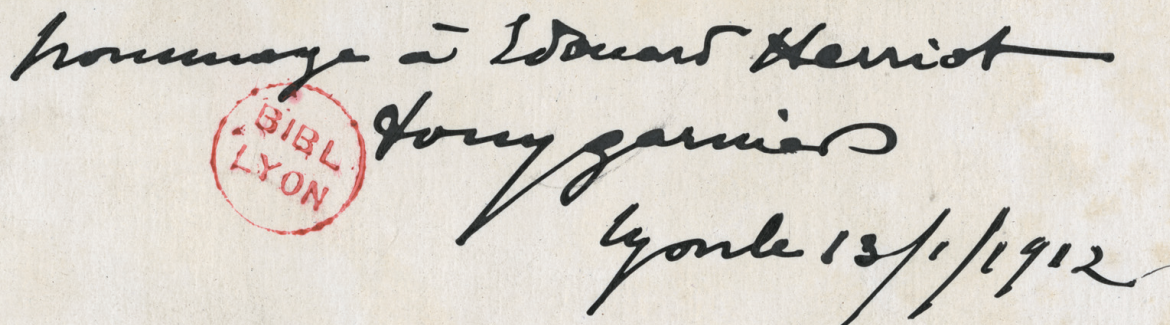 hommage à Edouard Herriot
BIBL
LYON
tony garnier
lyon le 13/1/1912